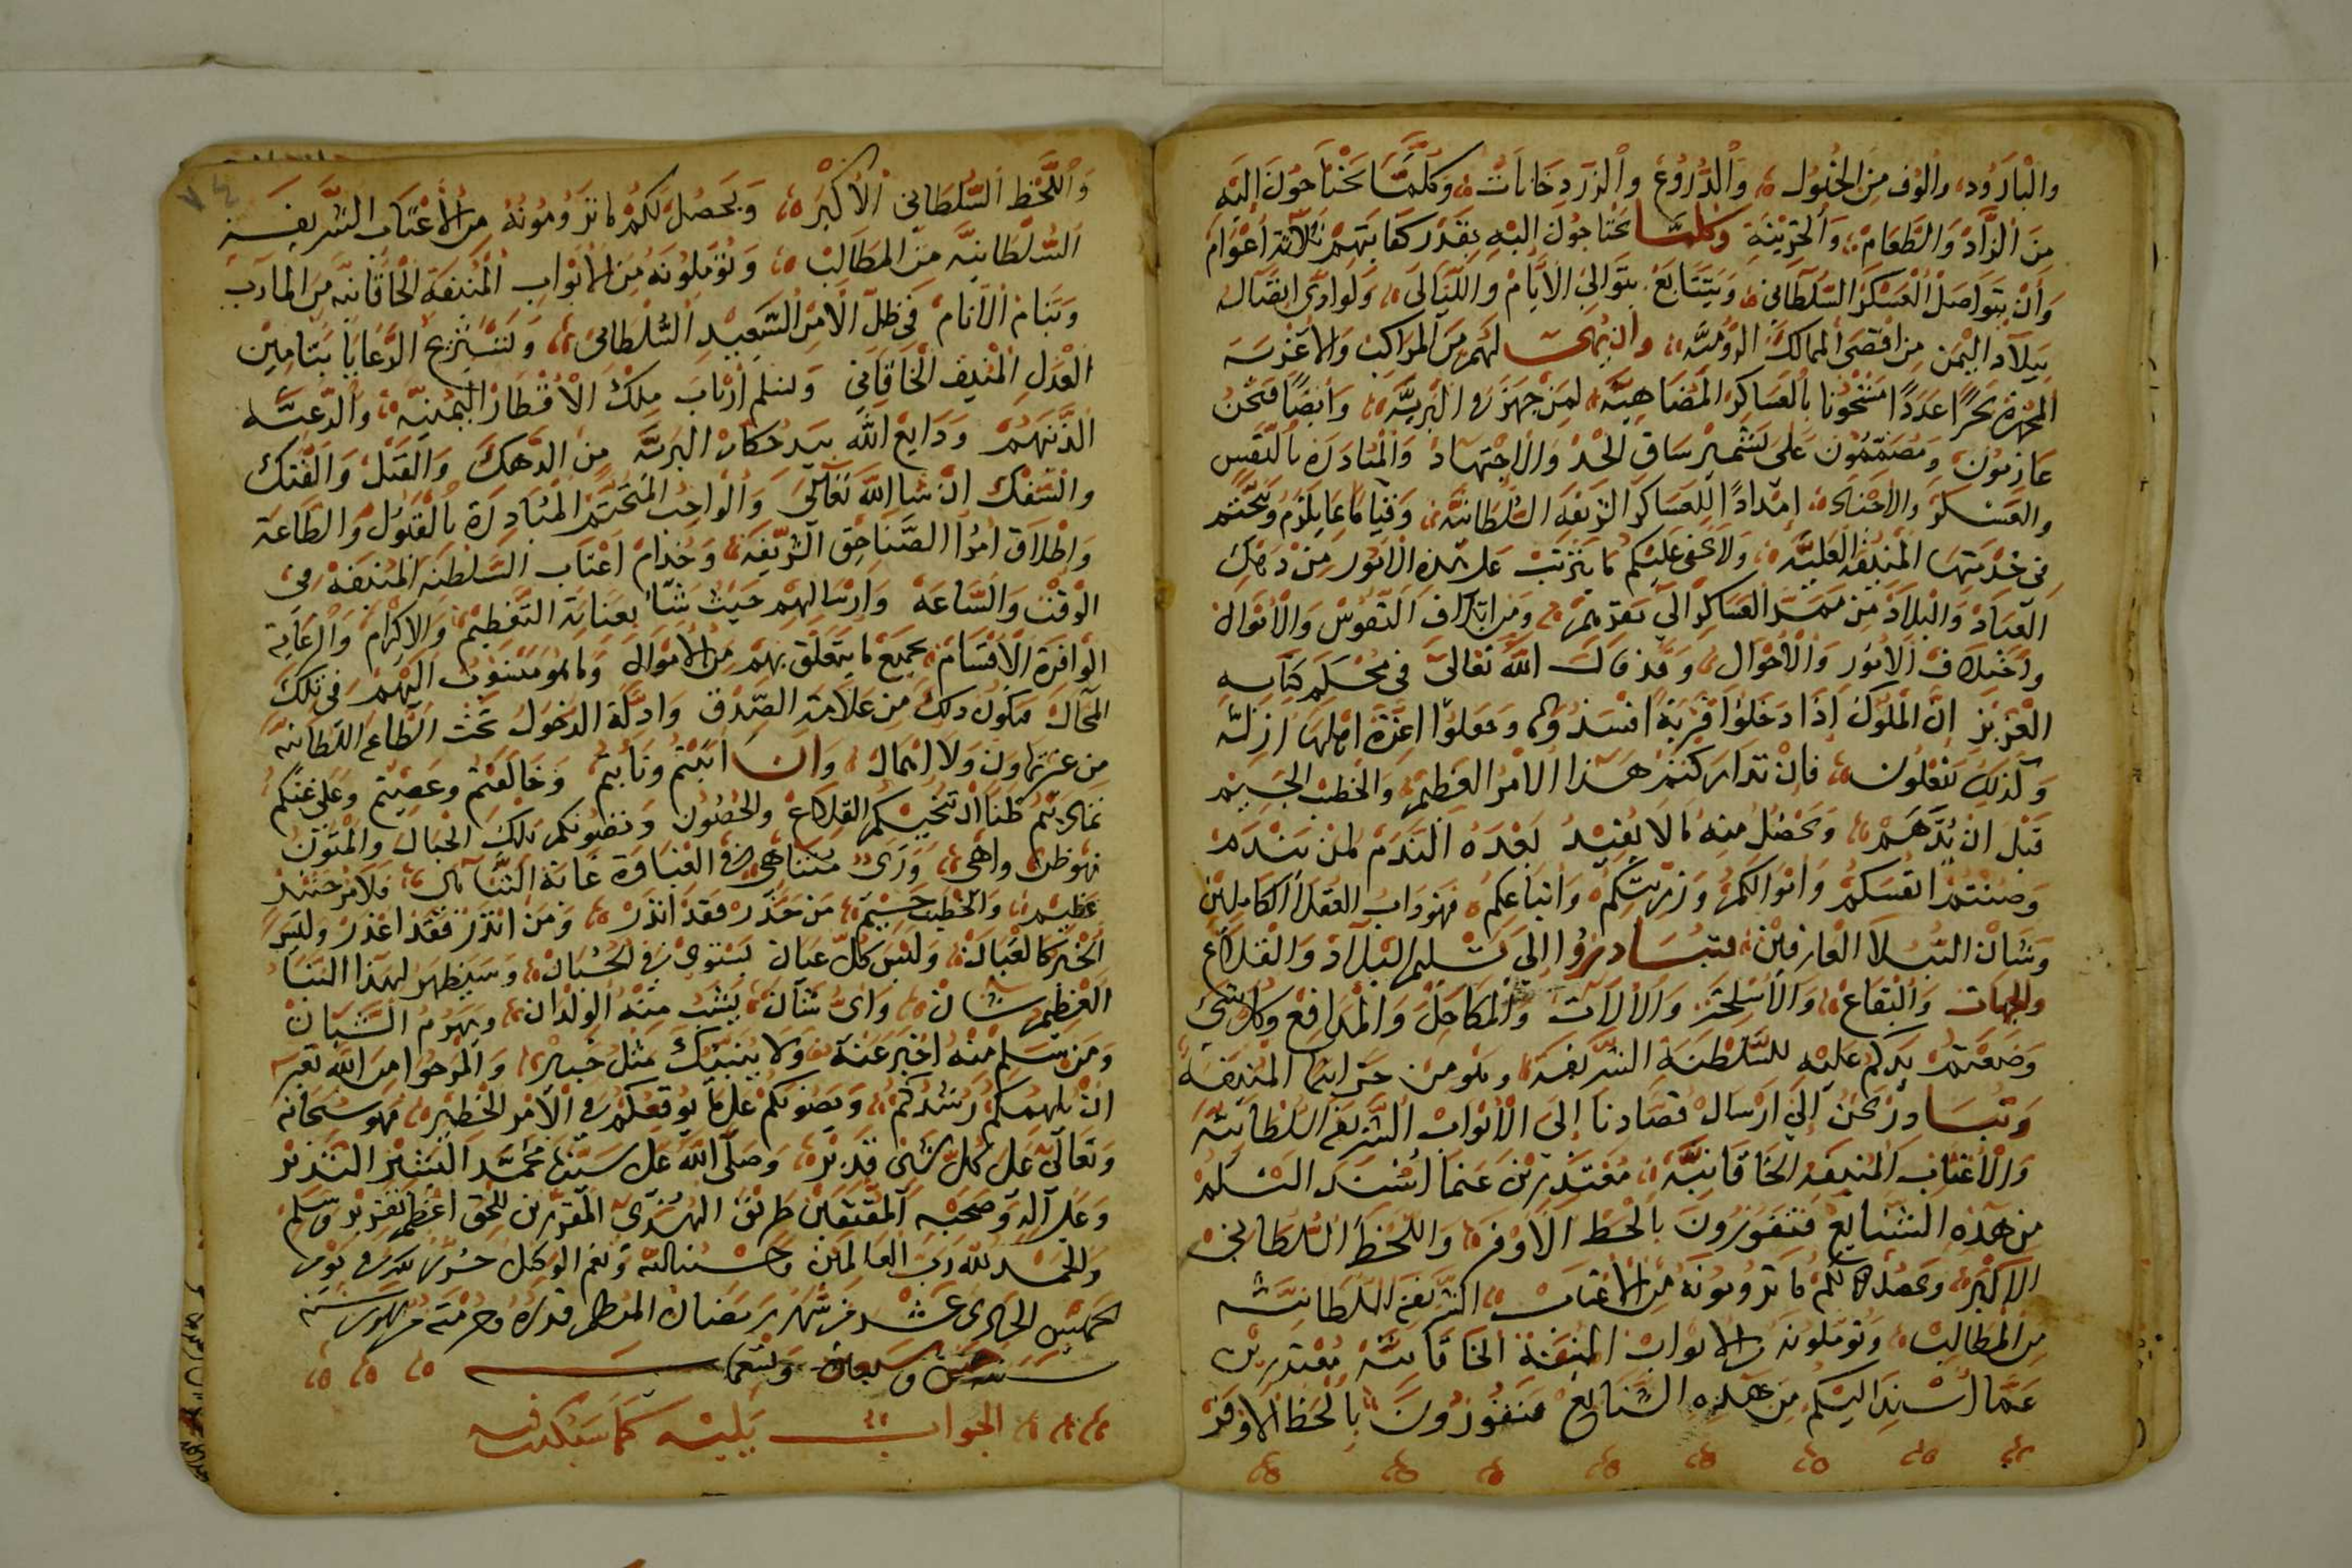 والبارود والوف من الخيول والدروع والزردخانات وكلما يحتاجون اليه
من الزاد والطعام والخزينة وكلما يحتاجون اليه بقدر كفايتهم ثلاثة اعوام
وان يتواصل العسكر السلطاني ويتتابع بتوالي الايام والليالي ولو ادى اتصاله
ببلاد اليمن من اقصى الممالك الرومية وان لهم من المراكب والاغربة
بحرا عددا مشحونا بالعساكر المضاهية لمن جهز في البرية وايضا فنحن
عازمون ومصممون على تشمير ساق الجد والاجتهاد والمبادرة بالنفس
والعسكر والاجناد امدادا للعساكر الشريفة السلطانية وقياما بما يلزم ويتحتم
في خدمتها المنيفة العلية ولا يخفى عليكم ما يترتب على هذه الامور من دهك
العباد والبلاد من ممر العساكر التي تقدمهم ومن اتلاف النفوس والاموال
واختلاف الامور والاحوال وقد قال الله تعالى في محكم كتابه
العزيز ان الملوك اذا دخلوا قرية افسدوها وجعلوا اعزة اهلها اذلة
وكذلك يفعلون فان تداركتم هذا الامر العظيم والخطب الجسيم
قبل ان يدهم ويحصل منه ما لا يفيد بعده الندم لمن يندم
وصنتم انفسكم واموالكم وذريتكم واتباعكم فهو داب العقلا الكاملين
وشان النبلا العارفين فتبادروا الى تسليم البلاد والقلاع
والجهات والبقاع والاسلحة والالات والمكاحل والمدافع وكل شي
وضعتم يدكم عليه للسلطنة الشريفة وهو من خزاينها المنيفة
وتبادر نحن الى ارسال قصادنا الى الابواب الشريفة السلطانية
والاعتاب المنيفة الخاقانية معتذرين عنما اسند اليكم
من هذه الشنايع فتفوزون بالحظ الاوفر واللحظ السلطاني
الاكبر ويحصل لكم ما ترومونه من الاعتاب الشريفة السلطانية
من المطالب وتوملونه من الابواب المنيفة الخاقانية معتذرين
عما اسند اليكم من هذه الشنايع فتفوزون بالحظ الاوفر
٧٤
واللحظ السلطاني الاكبر ويحصل لكم ما ترومونه من الاعتاب الشريفة
السلطانية من المطالب وتوملونه من الابواب المنيفة الخاقانية من المارب
وتنام الانام في ظل الامر السعيد السلطاني ولتستريح الرعايا بتامين
العدل المنيف الخاقاني ولتسلم ارباب ملك الاقطار اليمنية والرعية
الذينهم ودايع الله بيد حكام البرية من الدهك والقتل والفتك
والسفك ان شا الله تعالى والواجب المتحتم المبادرة بالقبول والطاعة
واطلاق امرا الصناجق الشريفة وخدام اعتاب السلطنة المنيفة في
الوقت والساعة وارسالهم حيث شا بعناية التعظيم والاكرام والرعاية
الوافرة الاقسام بجميع ما يتعلق بهم من الاموال وما هو منسوب اليهم في تلك
المحال فيكون ذلك من علامة الصدق وادلة الدخول تحت الطاعة السلطانية
من غير تهاون ولا اهمال وان ابيتم ونابيتم وخالفتم وعصيتم وعلى غيكم
تماديتم ظنا ان تحميكم القلاع والحصون وتصونكم تلك الجبال والمتون
فهو ظن واهي وراى متناهي في الغباوة غاية التناهي فلامر حينئذ
عظيم والخطب جسيم من حذر فقد انذر ومن انذر فقد اعذر وليس
الخبر كالعيان وليس كل عيان يستوي في الحسبان وسيظهر لهذا النبا
العظيم شان واي شان يشيب منه الولدان ويهرم الشبان
ومن سلم منه اخبر عنه ولا ينبيك مثل خبير والمرجوا من الله تعالى
ان يلهمكم رشدكم ويصونكم عن ما يوقعكم في الامر الخطير فهو سبحانه
وتعالى على كل شي قدير وصلى الله على سيدنا محمد البشير النذير
وعلى اله وصحبه المقتفين طريق الهدى المقررين للحق اعظم تقرير وسلم
والحمد لله رب العالمين وحسبنا الله ونعم الوكيل حرر في يوم
الخميس الحادي عشر من شهر رمضان المعظم قدره وحرمته من شهور سنة
سنة وسبعين وتسعماية
الجواب يليه كما سيكتب فيه